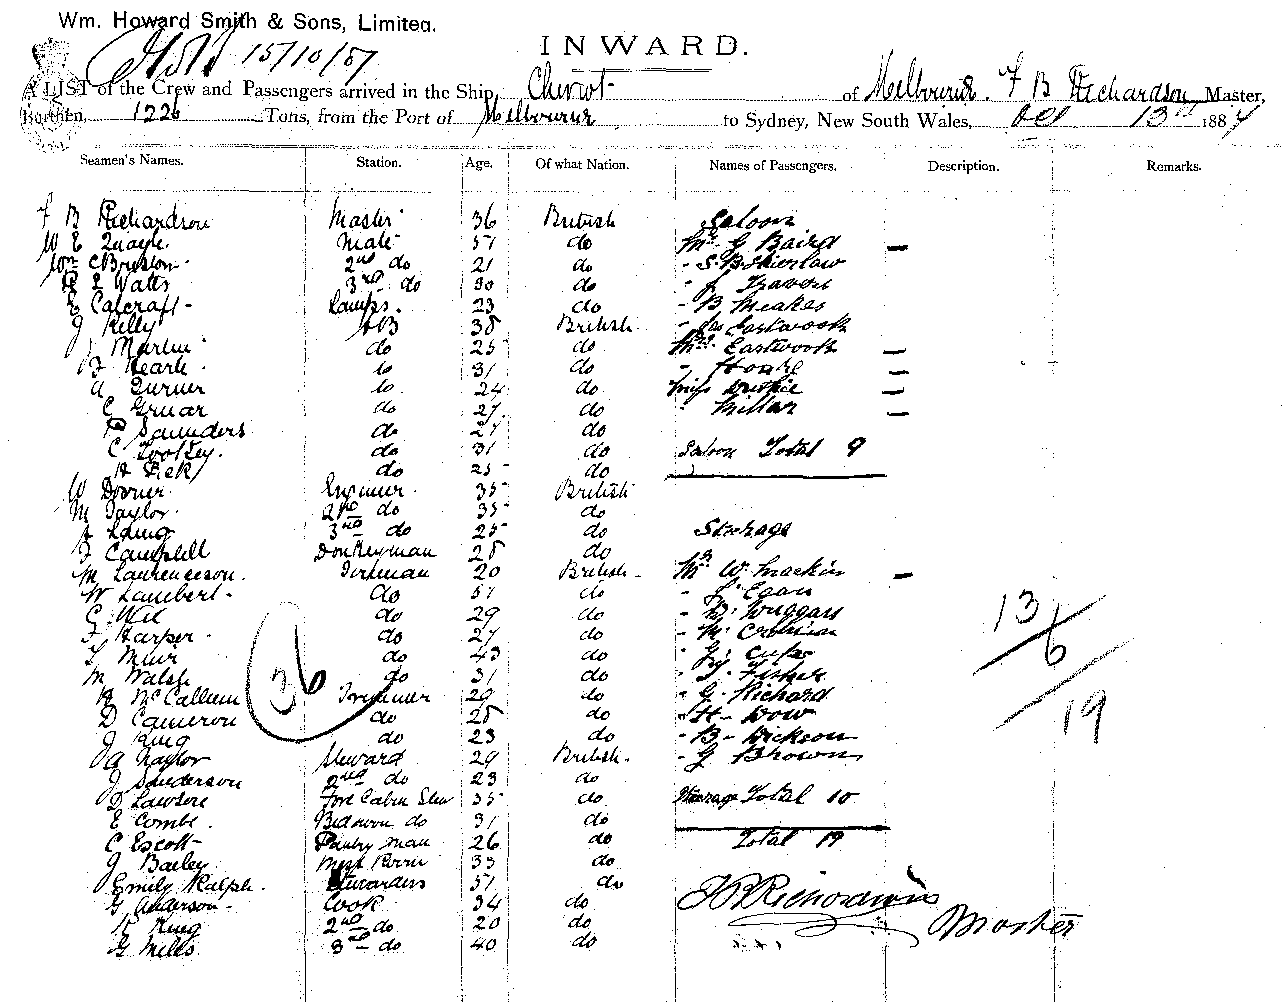 Wm. Howard Smith & Sons, Limited.
15/10/87
INWARD.
A LIST of the Crew and Passengers arrived in the Ship Cheviot of Melbourne. F B Richardson Master,
Burthen, 1226 Tons, from the Port of Melbourne to Sydney, New South Wales, Oct 13th 1887
Seamen's Names. Station. Age. Of what Nation. Names of Passengers. Description. Remarks.
F B Richardson Master 36 British Saloon
W E Quayle Mate 51 do Mr G Baird —
Wm C 2nd do 21 do
R L Watts 3rd do 30 do
E Calcraft Lamps. 23 do - B Meakes
J Kelly AB 38 British - Jas Eastwood
J Martin do 25 do Mrs Eastwood —
do 31 do —
A Turner do 24 do Miss —
C Gruar do 27 do " Millar —
P Saunders do 27 do
C Tootley. do 31 do Saloon Total 9
H Peck do 25 do
W Dorner Engineer 35 British
M Taylor 2nd do 35 do
J Laing 3rd do 25 do Steerage
J Campbell Donkeyman 28 do
M Laurenceson. Fireman 20 British Mr W. Mackin —
W Lambert do 51 do - J. Egan
G do 29 do - D. Duggan
J. Harper do 27 do - M. Cronin
T Muir do 43 do
M Walsh do 31 do - J. Fisher
H McCallum Trimmer 29 do - G. Richard
D Cameron do 28 do - H - Dow
J King do 23 do - B - Dickson
A Naylor Steward 29 British. - G Brown
J Sanderson 2nd do 23 do
D Lawson Fore Cabin Stew 35 do Steerage Total 10
E Combe Bedroom do 31 do
C Escott Pantry man 26 do Total 19
J Bailey Mess Room 33 do
Emily Ralph. Stewardess 51 do
G Anderson Cook 34 do F B Richardson
K King 2nd do 20 do Master
G Mills 3rd do 40 do
36
13
6
19